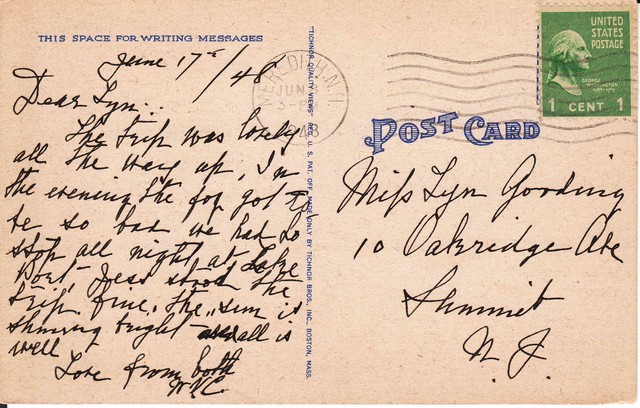 THIS SPACE FOR WRITING MESSAGES
June 17th / 48
Dear Lyn..
The trip was lovely
all the way up, In
the evening the fog got to
be so bad we had to
stop all night at Lake
Port, Jess stood the
trip fine. The sun is
shining bright all is
well
Love from both
"TICHNOR QUALITY VIEWS" REG. U. S. PAT. OFF. MADE ONLY BY TICHNOR BROS. INC., BOSTON, MASS.
MEREDITH N.H.
JUN
3-P
48
UNITED
STATES
POSTAGE
GEORGE
WASHINGTON
1 CENT 1
POST CARD
Miss Lyn Gooding
10 Oakridge Ave
Summit
N. J.